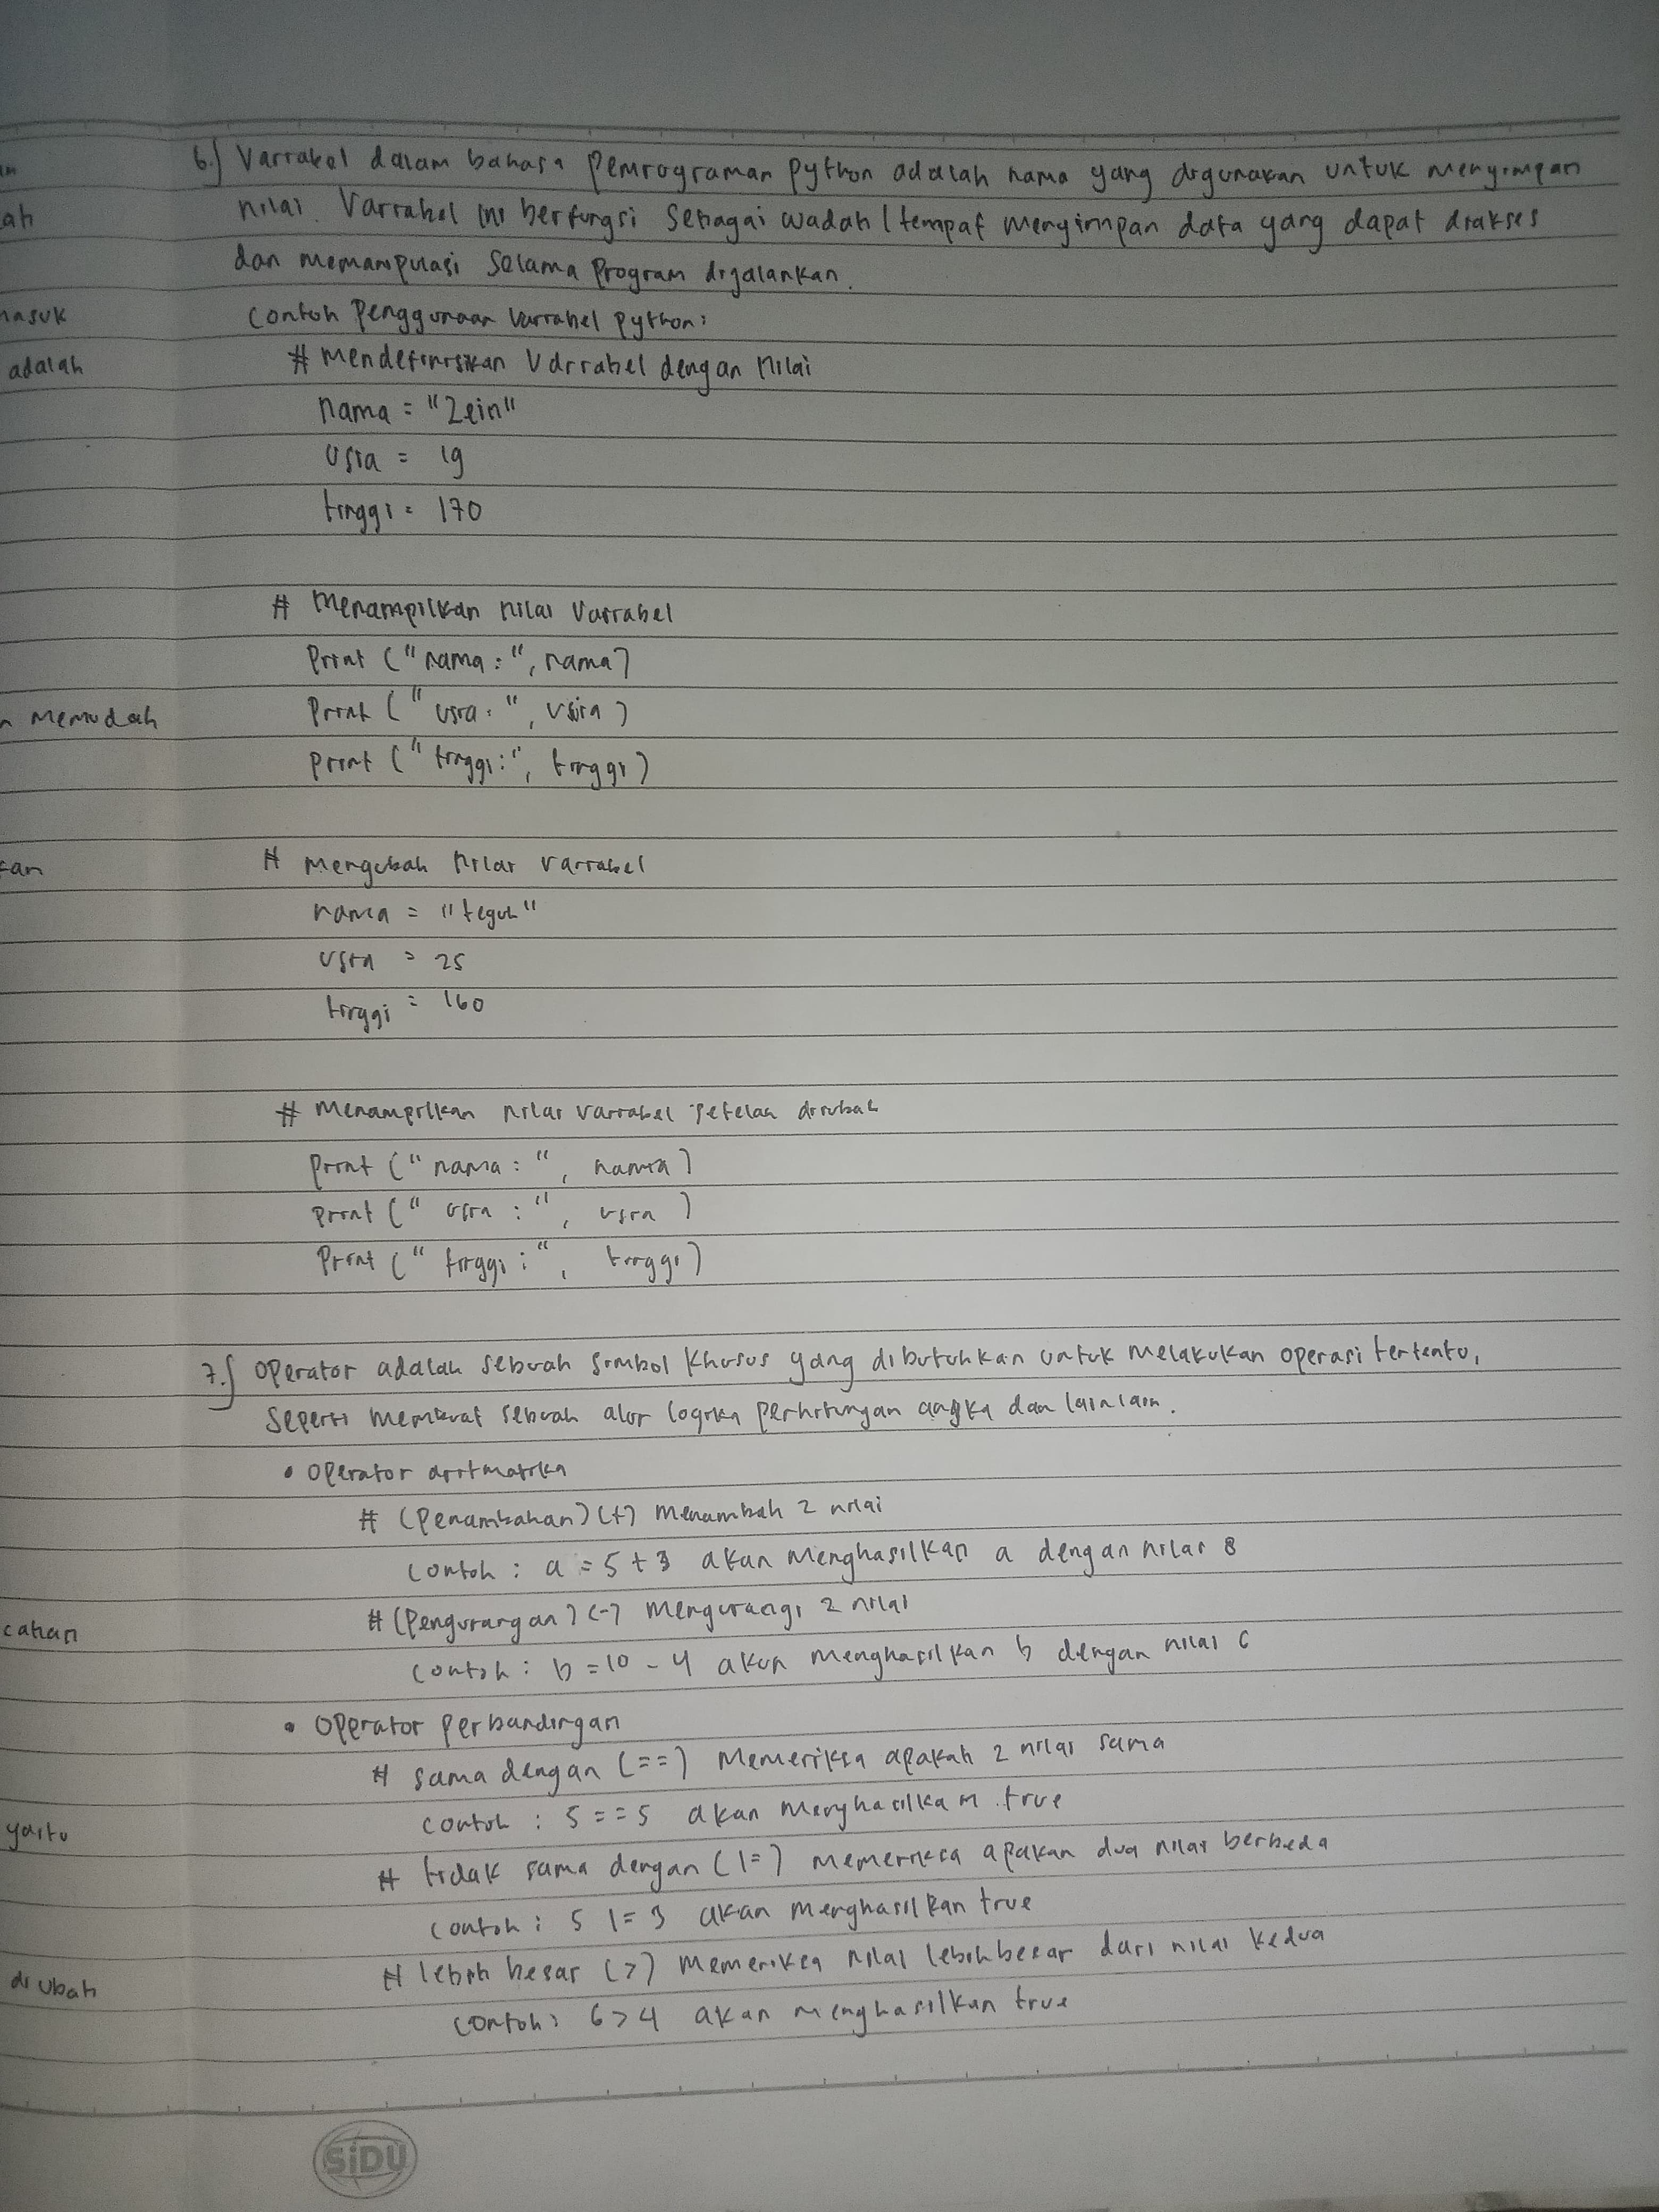 6.) Variabel dalam bahasa pemrograman python adalah nama yang digunakan untuk menyimpan
nilai. Variabel ini berfungsi sebagai wadah / tempat menyimpan data yang dapat diakses
dan memanipulasi selama program dijalankan.
Contoh penggunaan variabel python:
# mendefinisikan variabel dengan nilai
nama = "Zein"
usia = 19
tinggi = 170
# Menampilkan nilai variabel
Print ("nama:", nama)
Print ("usia:", usia)
Print ("tinggi:", tinggi)
# Mengubah nilai variabel
nama = "teguh"
usia = 25
tinggi = 160
# Menampilkan nilai variabel setelah dirubah
Print ("nama:", nama)
Print ("usia:", usia)
Print ("tinggi:", tinggi)
7.) Operator adalah sebuah simbol khusus yang dibutuhkan untuk melakukan operasi tertentu,
Seperti membuat sebuah alur logika perhitungan angka dan lain lain.
• Operator aritmatika
# (Penambahan) (+) menambah 2 nilai
Contoh : a = 5 + 3 akan menghasilkan a dengan nilai 8
# (Pengurangan) (-) mengurangi 2 nilai
Contoh : b = 10 - 4 akan menghasilkan b dengan nilai 6
• Operator perbandingan
# sama dengan (==) memeriksa apakah 2 nilai sama
Contoh : 5 == 5 akan menghasilkan true
# tidak sama dengan (!=) memeriksa apakah dua nilai berbeda
Contoh : 5 != 3 akan menghasilkan true
# lebih besar (>) memeriksa nilai lebih besar dari nilai kedua
Contoh : 6 > 4 akan menghasilkan true
ah
masuk
adalah
memudah
yaitu
diubah
SiDU